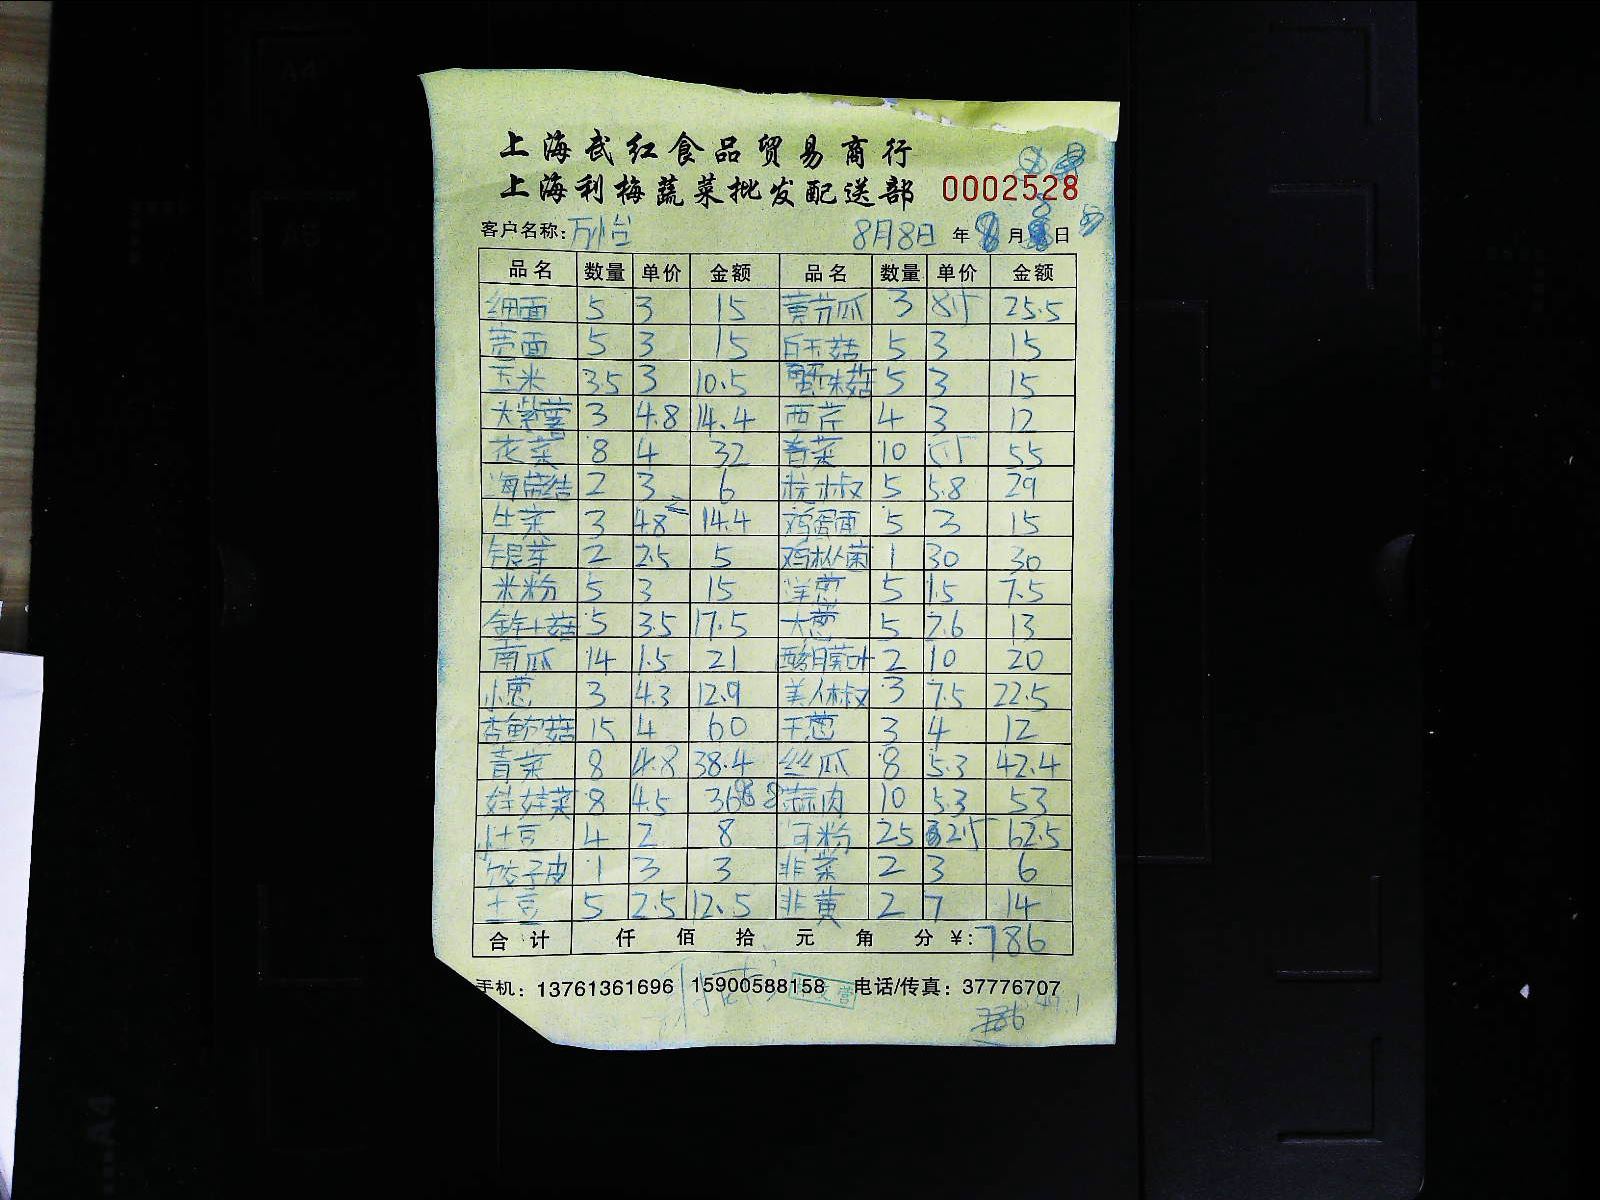 上海武红食品贸易商行
上海利梅蔬菜批发配送部 0002528
客户名称: 8月8日 年 月 日
品名 数量 单价 金额 品名 数量 单价 金额
细面 5 3 15 黄节瓜 3 8.5 25.5
宽面 5 3 15 白玉菇 5 3 15
玉米 3.5 3 10.5 蟹味菇 5 3 15
大紫薯 3 4.8 14.4 西芹 4 3 12
花菜 8 4 32 春菜 10 5.5 55
海带结 2 3 6 杭椒 5 5.8 29
生菜 3 4.8 14.4 鸡蛋面 5 3 15
银芽 2 2.5 5 鸡枞菌 1 30 30
米粉 5 3 15 洋葱 5 1.5 7.5
金针菇 5 3.5 17.5 大葱 5 2.6 13
南瓜 14 1.5 21 2 10 20
小葱 3 4.3 12.9 美人椒 3 7.5 22.5
杏鲍菇 15 4 60 干葱 3 4 12
青菜 8 4.8 38.4 丝瓜 8 5.3 42.4
娃娃菜 8 4.5 36 蒜肉 10 5.3 53
小土豆 4 2 8 河粉 25 2.5 62.5
饺子皮 1 3 3 韭菜 2 3 6
土豆 5 2.5 12.5 韭黄 2 7 14
合计 仟 佰 拾 元 角 分 ¥: 786
手机: 13761361696 15900588158 电话/传真: 37776707